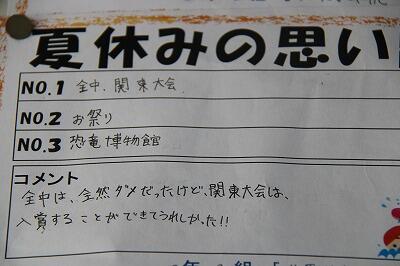 夏休みの思い
NO.1 全中、関東大会
NO.2 お祭り
NO.3 恐竜博物館
コメント
全中は、全然ダメだったけど、関東大会は、
入賞することができてうれしかった!!